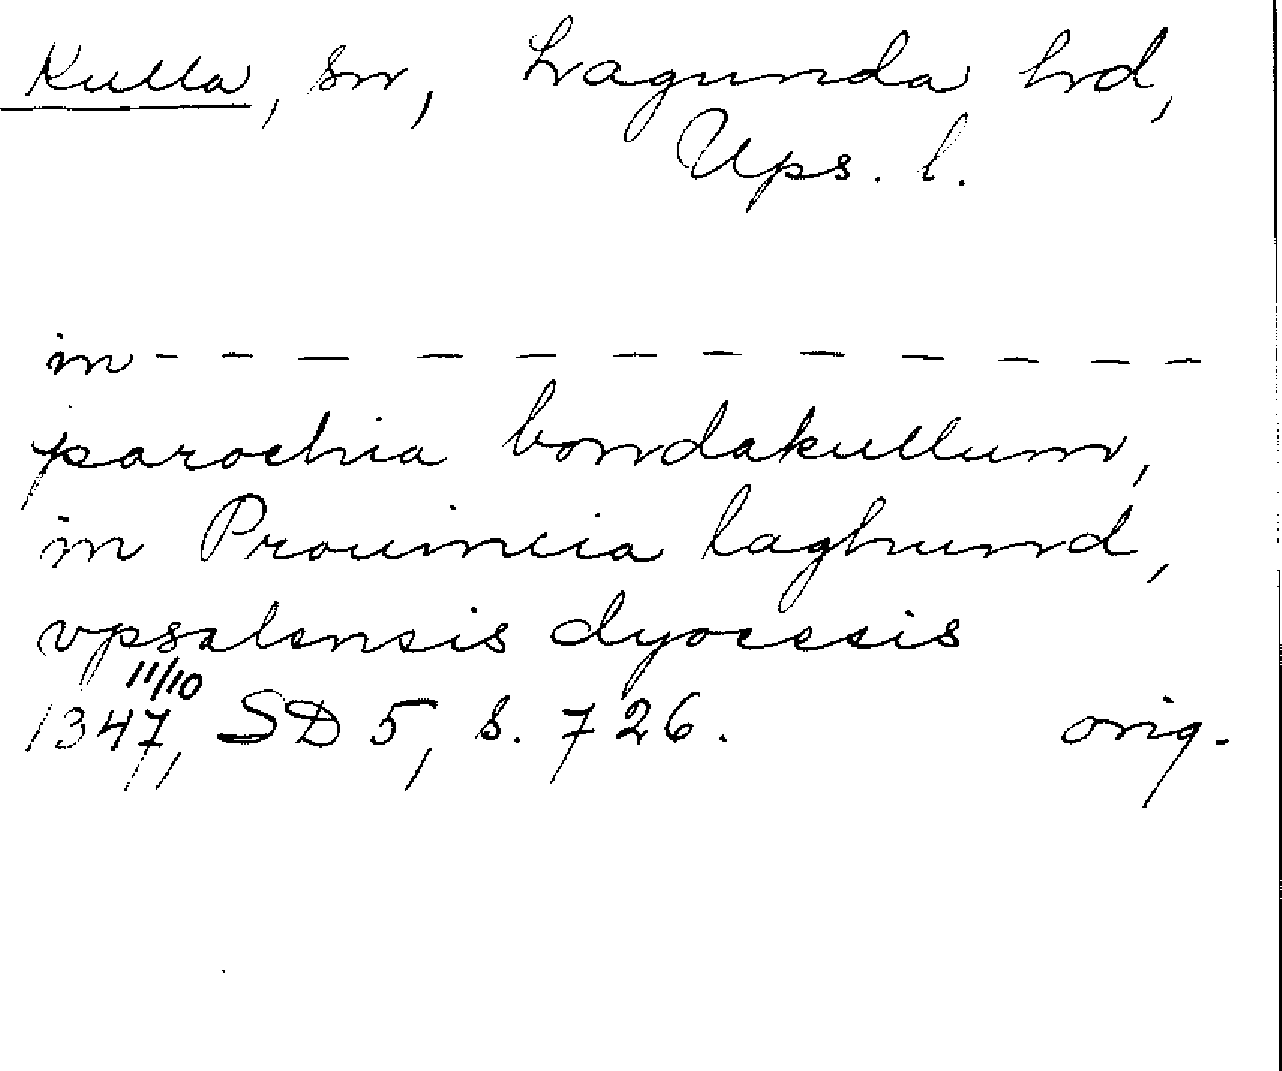 Kulla, sn, Lagunda hd,
Ups. l.
in - - - - - - - - - - - -
parochia bondakullum,
in Prouincia laghund,
vpsalensis dyocesis
11/10
1347, SD 5, s. 726. orig.